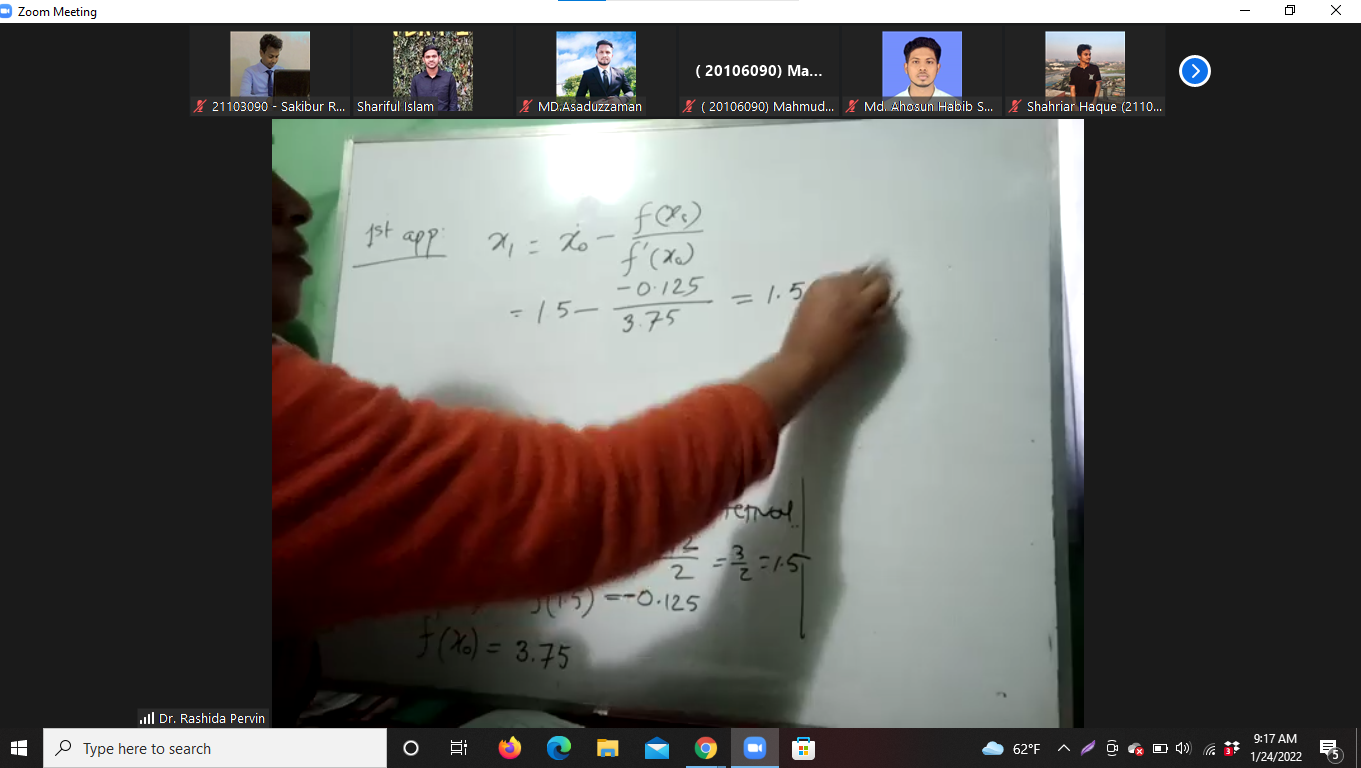 Zoom Meeting
( 20106090) Ma...
21103090 - Sakibur R...
Shariful Islam
MD.Asaduzzaman
( 20106090) Mahmud...
Md. Ahosun Habib S...
Shahriar Haque (2110...
1st app: x₁ = x₀ - f(x₀)/f'(x₀)
= 1.5 - -0.125/3.75 = 1.5
2/2 = 3/2 = 1.5
f(1.5) = -0.125
f'(x₀) = 3.75
Dr. Rashida Pervin
Type here to search
62°F
3
9:17 AM
1/24/2022
5